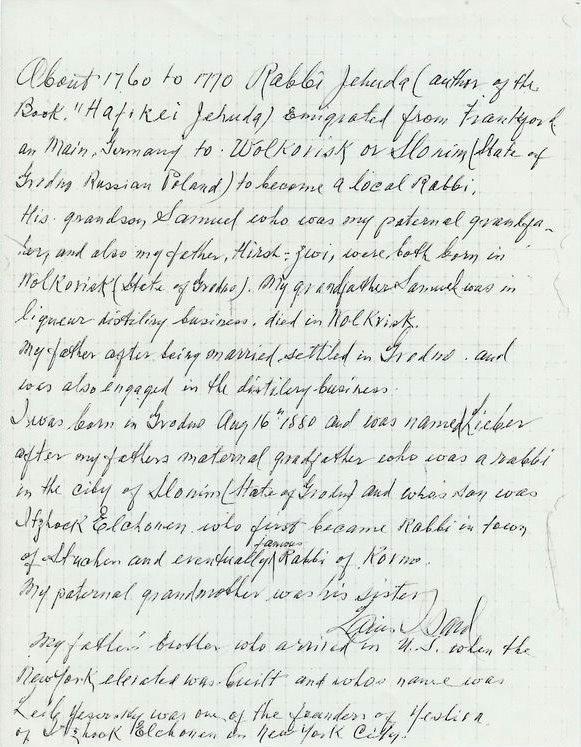 About 1760 to 1770 Rabbi Jehuda (author of the
Book, "Hafikei Jehuda) emigrated from Frankford
an Main, Germany to Wolkovisk or Slonim (State of
Grodno Russian Poland) to become a local Rabbi.
His grandson Samuel who was my paternal grandfa-
ther, and also my father, Hirsh-zwi, were both born in
Wolkovisk (State of Grodno). My grandfather Samuel was in
liqueur distilery business, died in Wolkvisk.
My father after being married, settled in Grodno and
was also engaged in the distilery business.
I was born in Grodno Aug 16th 1880 and was named Lieber
after my fathers maternal gradfather who was a rabbi
in the city of Slonim (State of Grodno) and who's son was
Itzhock Elchonen who first became Rabbi in town
of and eventually famous Rabbi of Kovno.
My paternal grandmother was his sister
My father's brother who arrived in U.S. when the
New York elevated was built and who's name was
Leib was one of the founders of Yeshiva
of Itzhock Elchonen in New York City.